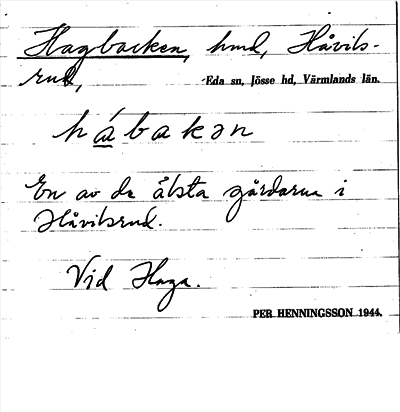 Hagbacken, hmd, Håvils-
rud, Eda sn, Jösse hd, Värmlands län.
hábakən
En av de älsta gårdarna i
Håvilsrud.
Vid Haga.
PER HENNINGSSON 1944.